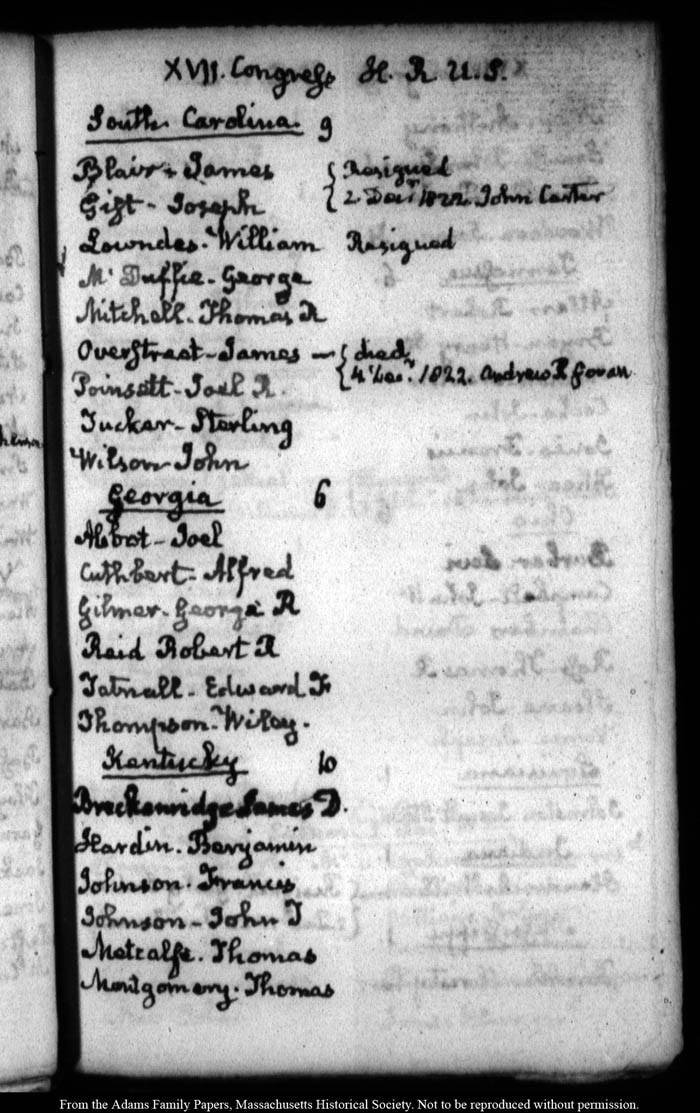 XVII. Congress H. R U.S.
South Carolina 9
Blair - James { Resigned
Gist - Joseph { 2 Decr 1822. John Carter
Lowndes - William Resigned
Mc Duffie - George
Mitchell - Thomas R
Overstreet - James — { died
Poinsett - Joel R. { 4 Decr. 1822. Andrew R Govan
Tucker - Sterling
Wilson John
Georgia 6
Abbot - Joel
Cuthbert - Alfred
Gilmer - George R
Reid Robert R
Tatnall - Edward F
Thompson - Wiley.
Kentucky 10
Breckenridge James D.
Hardin. Benjamin
Johnson. Francis
Johnson - John T
Metcalfe. Thomas
Montgomery. Thomas
From the Adams Family Papers, Massachusetts Historical Society. Not to be reproduced without permission.